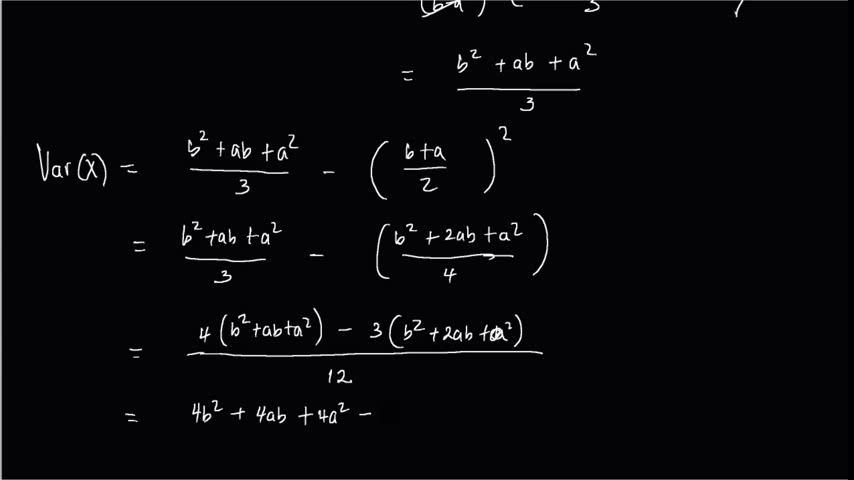 = b² + ab + a² / 3
Var(X) = b² + ab + a² / 3 - (b+a / 2)²
= b² + ab + a² / 3 - (b² + 2ab + a² / 4)
= 4(b² + ab + a²) - 3(b² + 2ab + a²) / 12
= 4b² + 4ab + 4a² -